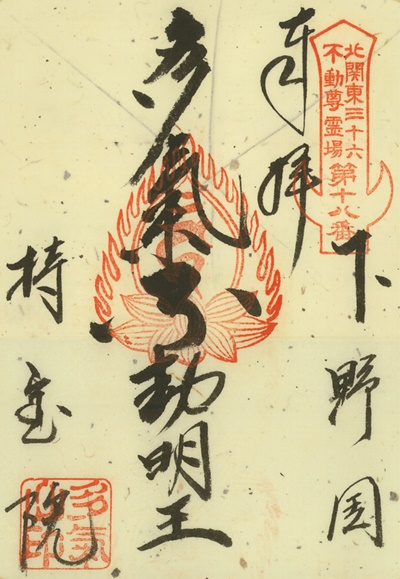 北關東三十六
不動尊霊場第十八番
奉拝
下野国
多氣不動明王
持宝院